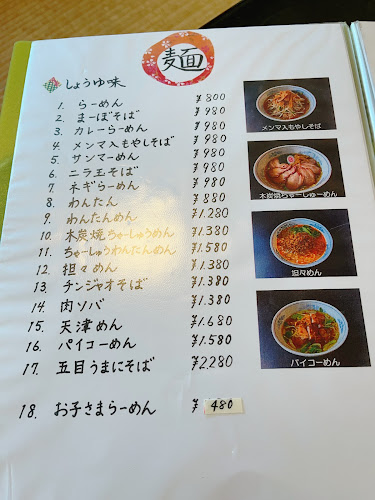 麺
しょうゆ味
1. らーめん ¥800
2. まーぼそば ¥980
3. カレーらーめん ¥980
4. メンマ入もやしそば ¥980
5. サンマーめん ¥980
6. ニラ玉そば ¥980
7. ネギらーめん ¥980
8. わんたん ¥880
9. わんたんめん ¥1.280
10. 木炭焼ちゃーしゅうめん ¥1.380
11. ちゃーしゅうわんたんめん ¥1.580
12. 担々めん ¥1.380
13. チンジャオそば ¥1.380
14. 肉ソバ ¥1.380
15. 天津めん ¥1.680
16. パイコーめん ¥1.580
17. 五目うまにそば ¥2.280
18. お子さまらーめん ¥480
メンマ入もやしそば
木炭焼ちゃーしゅーめん
担々めん
パイコーめん